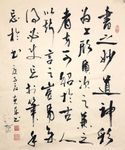 書之妙道神彩
為上形質次之兼之
者方可紹於古人
以斯言之豈易多
得必使心忘於筆手
忘於書